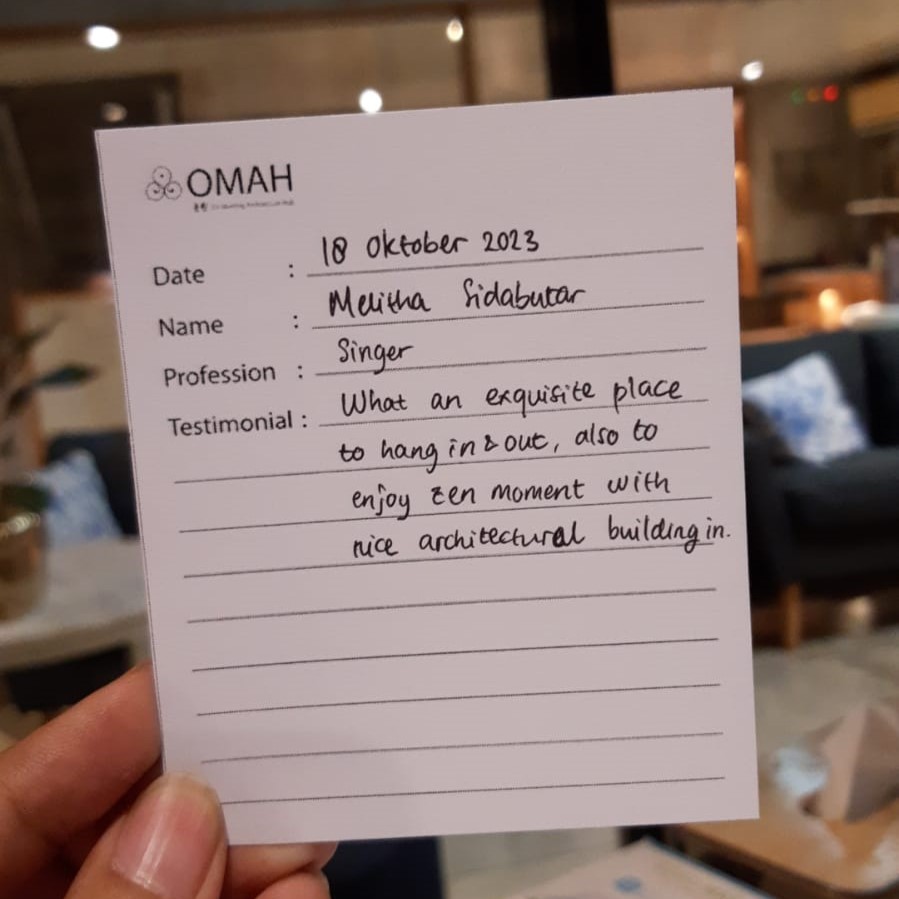 OMAH
Date : 18 Oktober 2023
Name : Melitha Sidabutar
Profession : Singer
Testimonial : What an exquisite place
to hang in & out, also to
enjoy zen moment with
nice architectural building in.